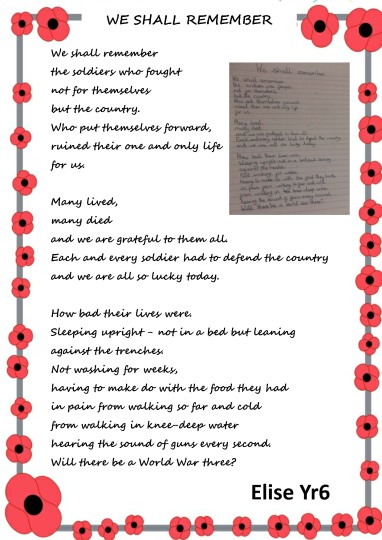 WE SHALL REMEMBER
We shall remember
the soldiers who fought
not for themselves
but the country.
Who put themselves forward,
ruined their one and only life
for us.
Many lived,
many died
and we are grateful to them all.
Each and every soldier had to defend the country
and we are all so lucky today.
How bad their lives were.
Sleeping upright – not in a bed but leaning
against the trenches.
Not washing for weeks,
having to make do with the food they had
in pain from walking so far and cold
from walking in knee-deep water
hearing the sound of guns every second.
Will there be a World War three?
Elise Yr6
We shall remember